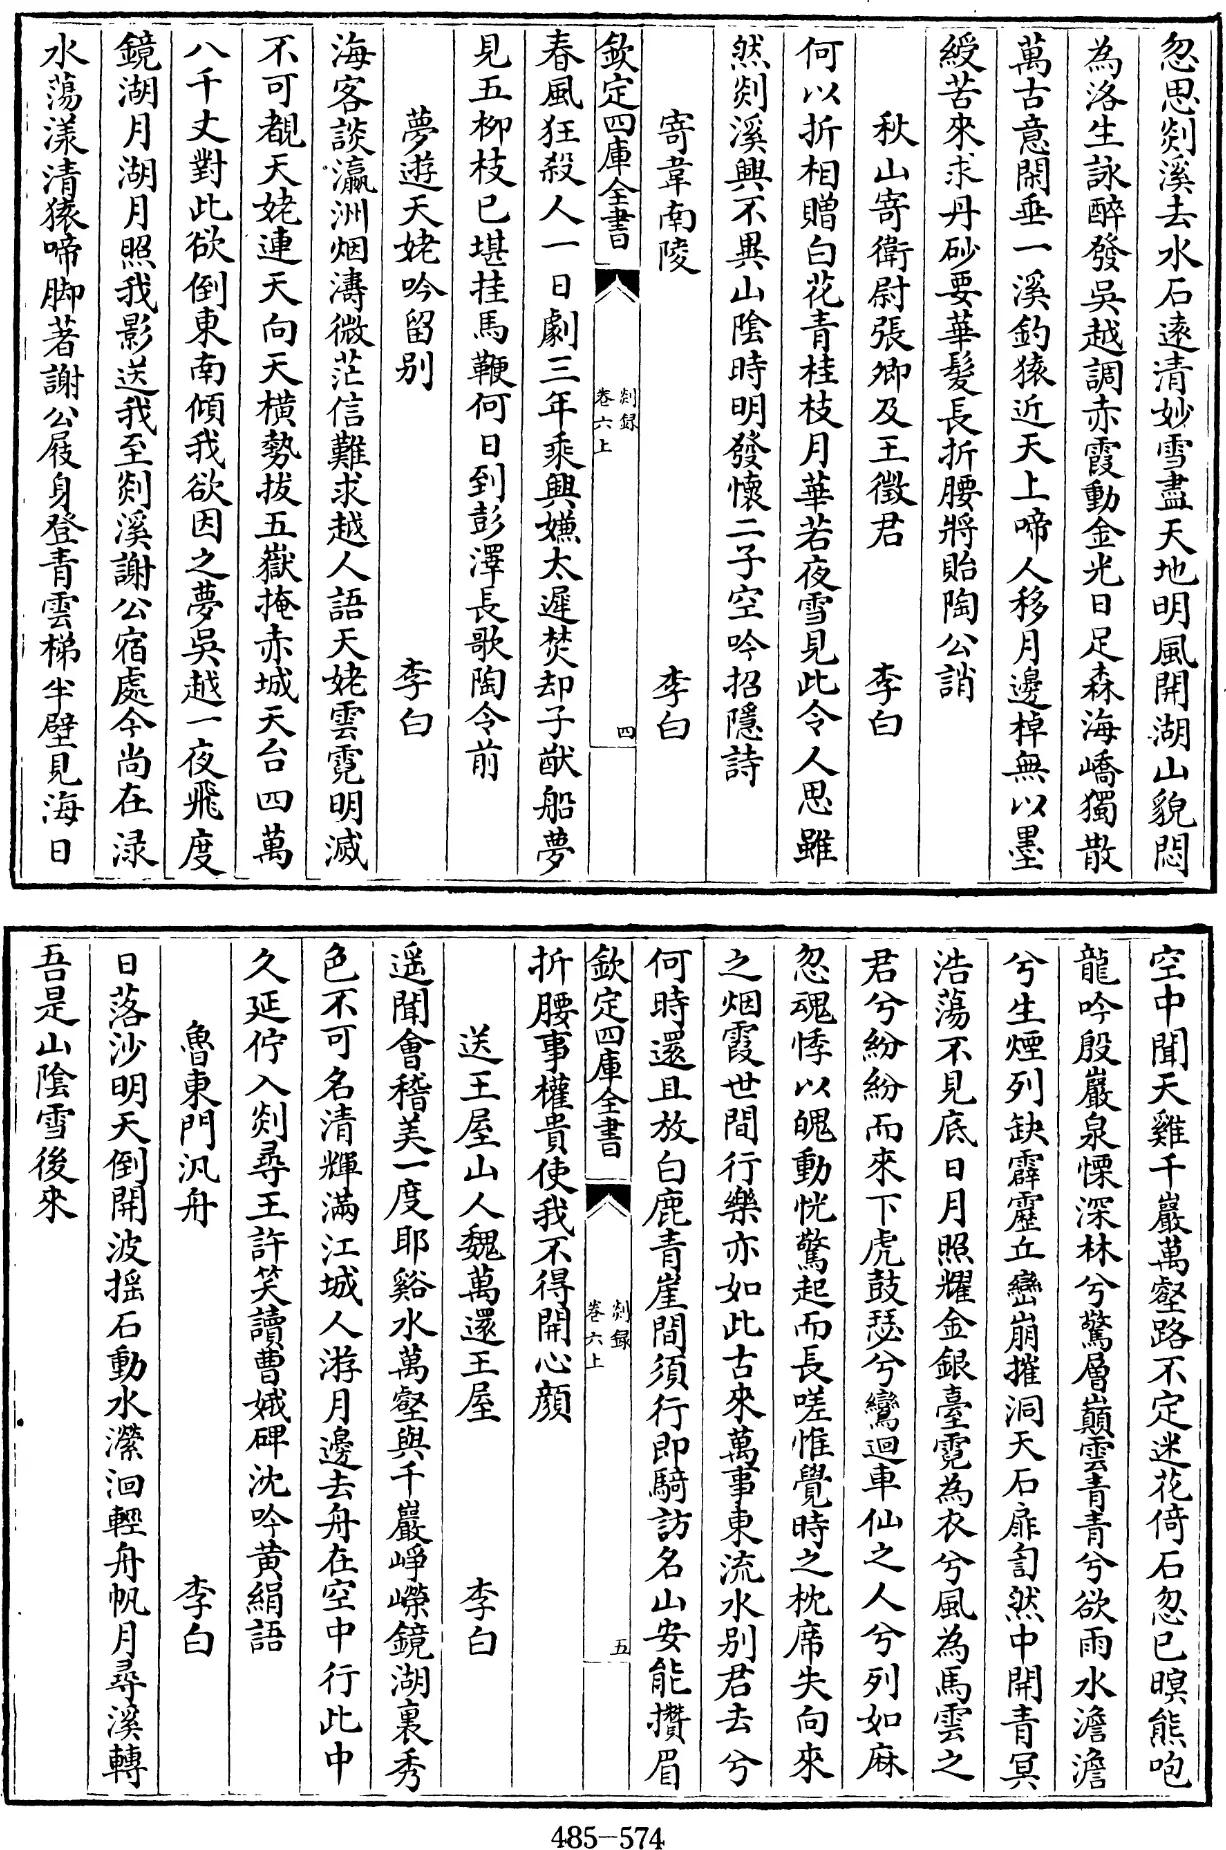 忽思剡溪去水石遠清妙雪盡天地明風開湖山貌悶
為洛生詠醉發吳越調赤霞動金光日足森海嶠獨散
萬古意閑垂一溪釣猿近天上啼人移月邊棹無以墨
綬苦來求丹砂要華髮長折腰將貽陶公誚
秋山寄衛尉張卿及王徵君 李白
何以折相贈白花青桂枝月華若夜雪見此令人思雖
然剡溪興不異山陰時明發懷二子空吟招隱詩
寄韋南陵 李白
欽定四庫全書 剡録 卷六上 四
春風狂殺人一日劇三年乘興嫌太遲焚却子猷船夢
見五柳枝已堪挂馬鞭何日到彭澤長歌陶令前
夢遊天姥吟留别 李白
海客談瀛洲烟濤微茫信難求越人語天姥雲霓明滅
不可覩天姥連天向天橫勢拔五嶽掩赤城天台四萬
八千丈對此欲倒東南傾我欲因之夢吳越一夜飛度
鏡湖月湖月照我影送我至剡溪謝公宿處今尚在渌
水蕩漾清猿啼脚著謝公屐身登青雲梯半壁見海日
空中聞天雞千巖萬壑路不定迷花倚石忽已暝熊咆
龍吟殷巖泉慄深林兮驚層巔雲青青兮欲雨水澹澹
兮生煙列缺霹靂丘巒崩摧洞天石扉訇然中開青冥
浩蕩不見底日月照耀金銀臺霓為衣兮風為馬雲之
君兮紛紛而來下虎鼓瑟兮鸞迴車仙之人兮列如麻
忽魂悸以魄動恍驚起而長嗟惟覺時之枕席失向來
之烟霞世間行樂亦如此古來萬事東流水别君去兮
何時還且放白鹿青崖間須行即騎訪名山安能攢眉
欽定四庫全書 剡録 卷六上 五
折腰事權貴使我不得開心顔
送王屋山人魏萬還王屋 李白
遥聞會稽美一度耶谿水萬壑與千巖崢嶸鏡湖裏秀
色不可名清輝滿江城人游月邊去舟在空中行此中
久延佇入剡尋王許笑讀曹娥碑沈吟黄絹語
魯東門汎舟 李白
日落沙明天倒開波揺石動水瀠洄輕舟帆月尋溪轉
吾是山陰雪後來
485-574